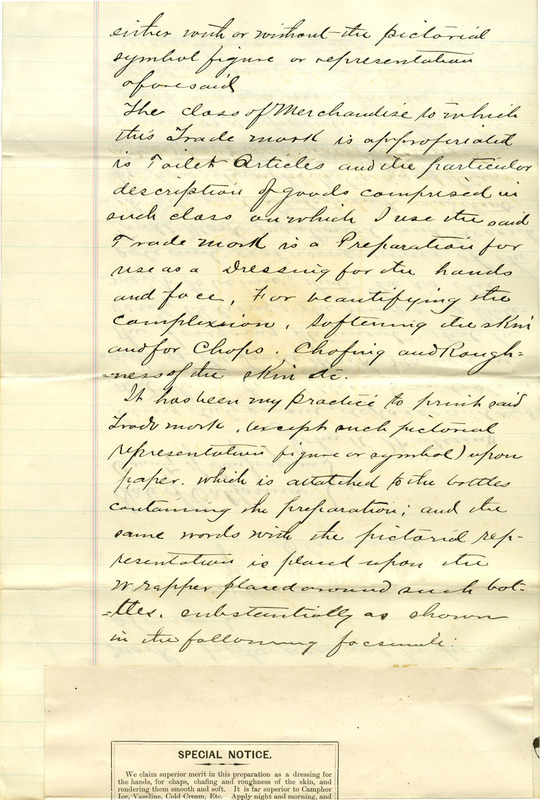 either with or without the pictorial
symbol figure or representation
aforesaid
The class of Merchandise to which
this Trade mark is appropriated
is Toilet Articles and the particular
description of goods comprised in
such class on which I use the said
Trade mark is a Preparation for
use as a Dressing for the hands
and face, For beautifying the
complexion, Softening the skin
and for Chaps, Chafing and Rough-
-ness of the skin &c.
It has been my practice to print said
Trade mark, (except such pictorial
representation figure or symbol) upon
paper. which is attatched to the bottles
containing the preparation; and the
same words with the pictorial rep-
resentation is placed upon the
wrapper placed around such bot-
-tles, substantially as shown
in the following facsimile:
SPECIAL NOTICE.
We claim superior merit in this preparation as a dressing for
the hands, for chaps, chafing and roughness of the skin, and
rendering them smooth and soft. It is far superior to Camphor
Ice, Vaseline, Cold Cream, Etc. Apply night and morning, and